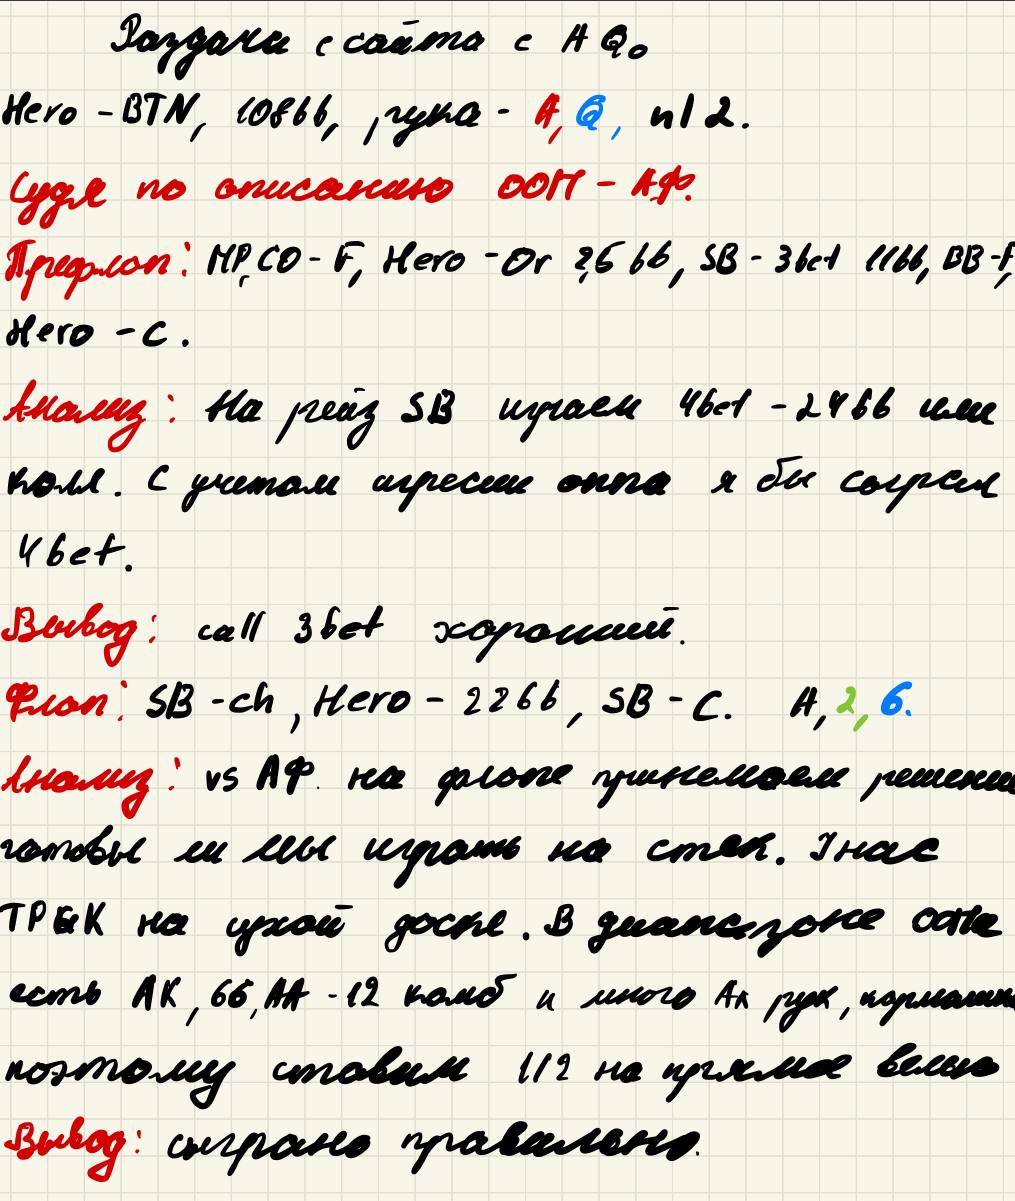 Раздача с сайта с AQo
Hero - BTN, 108bb, рука - A, Q, nl 2.
Судя по описанию ООП - АФ.
Префлоп: MP, CO - F, Hero - Or 2,5 bb, SB - 3bet 11bb, BB - F,
Hero - C.
Анализ: На рейз SB играем 4bet - 24bb или
колл. С учетом агресии оппа я бы сыграл
4bet.
Вывод: call 3bet хороший.
Флоп: SB - ch, Hero - 22bb, SB - C. A, 2, 6.
Анализ: vs АФ. на флопе принемаем решение
готовы ли мы играть на стек. У нас
на сухой доске. В диапазоне оппа
есть AK, 66, AA - 12 комб и много Ax рук,
поэтому ставим 1/2 на прямое велью
Вывод: сыграно правильно.